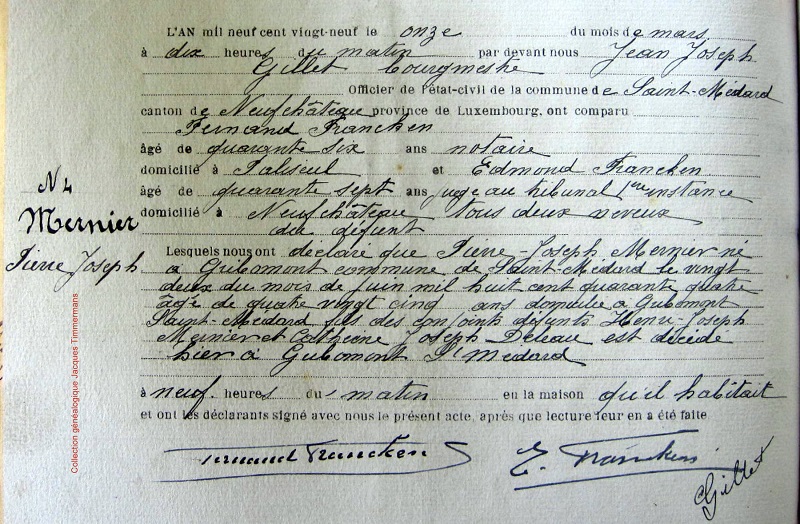 L'AN mil neuf cent vingt-neuf le onze du mois de mars
à dix heures du matin par devant nous Jean Joseph
Gillet bourgmestre
Officier de l'état-civil de la commune de Saint-Médard
canton de Neufchâteau province de Luxembourg, ont comparu
Fernand Francken
âgé de quarante six ans notaire
domicilié à Paliseul et Edmond Francken
âgé de quarante sept ans juge au tribunal 1ère instance
domicilié à Neufchâteau tous deux neveux
du défunt
N 4
Mernier
Pierre Joseph
Lesquels nous ont déclaré que Pierre-Joseph Mernier né
à Gribomont commune de Saint-Médard le vingt
deux du mois de juin mil huit cent quarante quatre
âgé de quatre vingt cinq ans domicilié à Gribomont
Saint-Médard fils des conjoints défunts Henri Joseph
Mernier et Catherine Joseph est décédé
hier à Gribomont St Médard
à neuf heures du matin en la maison qu'il habitait
et ont les déclarants signé avec nous le présent acte, après que lecture leur en a été faite
Fernand Francken E. Francken
Gillet
Collection généalogique Jacques Timmermans